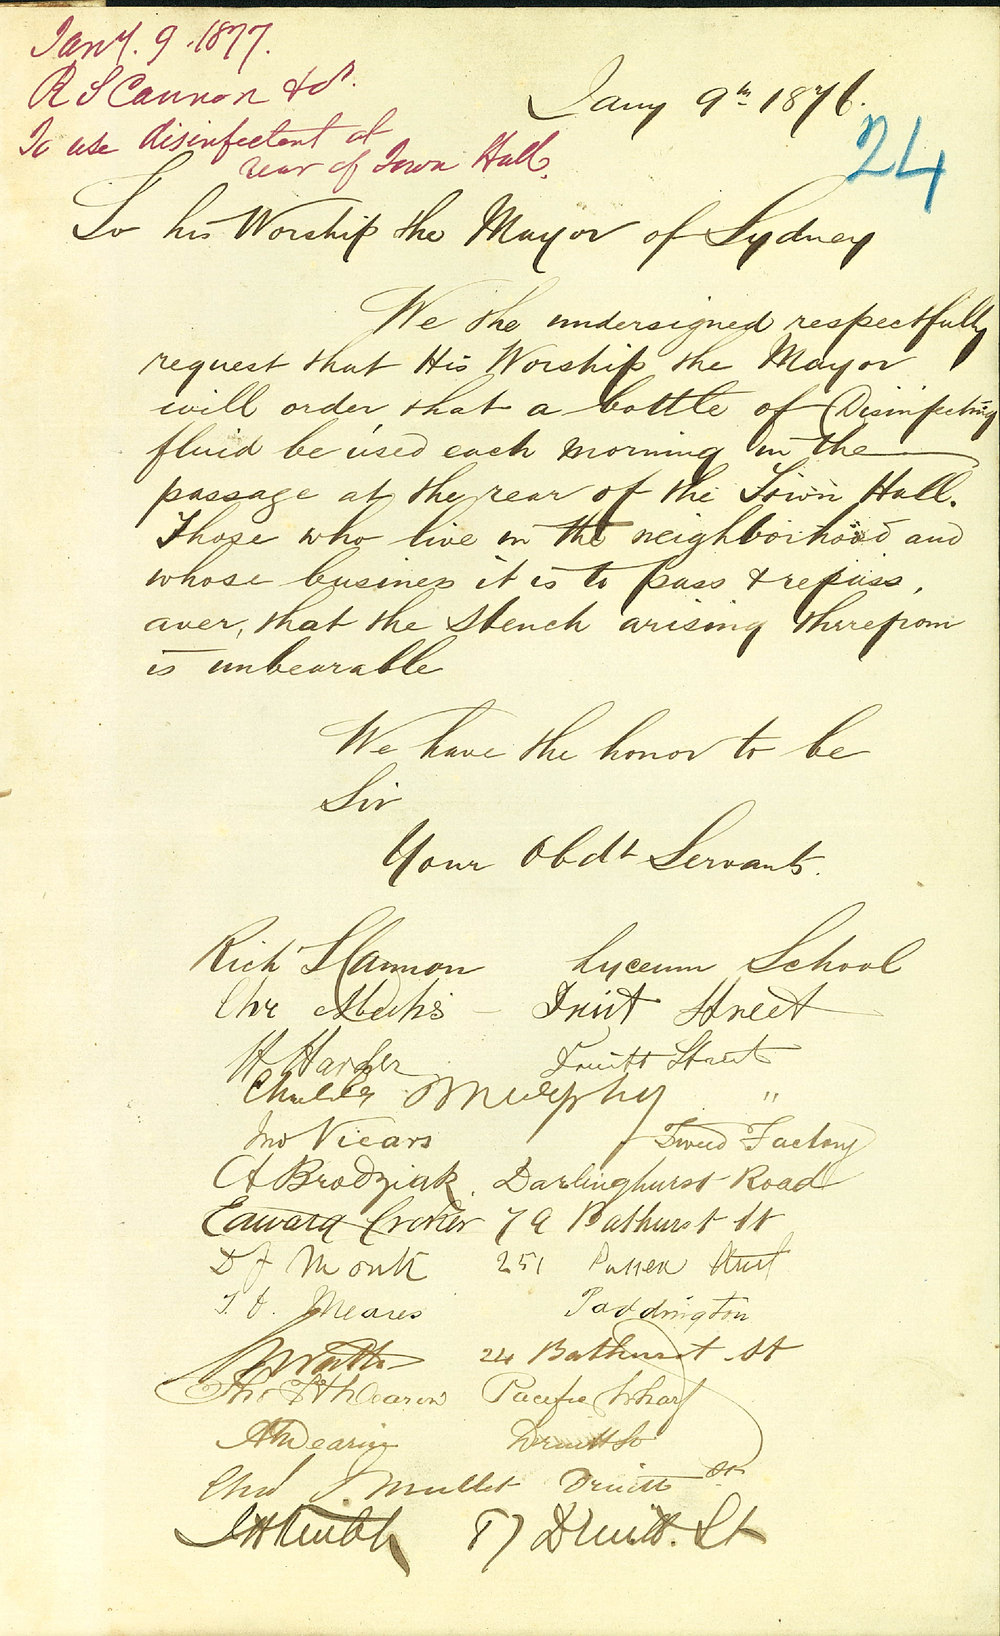 Jany. 9. 1877.
R S Cannon & ors.
To use disinfectant at
rear of Town Hall.
Jany 9th 1876.
24
To his Worship the Mayor of Sydney
We the undersigned respectfully
request that His Worship the Mayor
will order that a bottle of Disinfecting
fluid be used each morning in the
passage at the rear of the Town Hall.
Those who live in the neighborhood and
whose business it is to pass & repass,
aver, that the stench arising therefrom
is unbearable
We have the honor to be
Sir
Your Obdt Servants.
Rich S Cannon Lyceum School
Chr Druit Street
H Harder Druitt Street
Charles Murphy "
Jno Vicars Tweed Factory
A Brodziak. Darlinghurst Road
Edward Croker 79 Bathurst St
D J Monk 251 Street
Meares Paddington
24 Bathurst St
Pacific Wharf
Dearin Druitt St
Chas J. Mullet Druitt St
87 Druitt. St